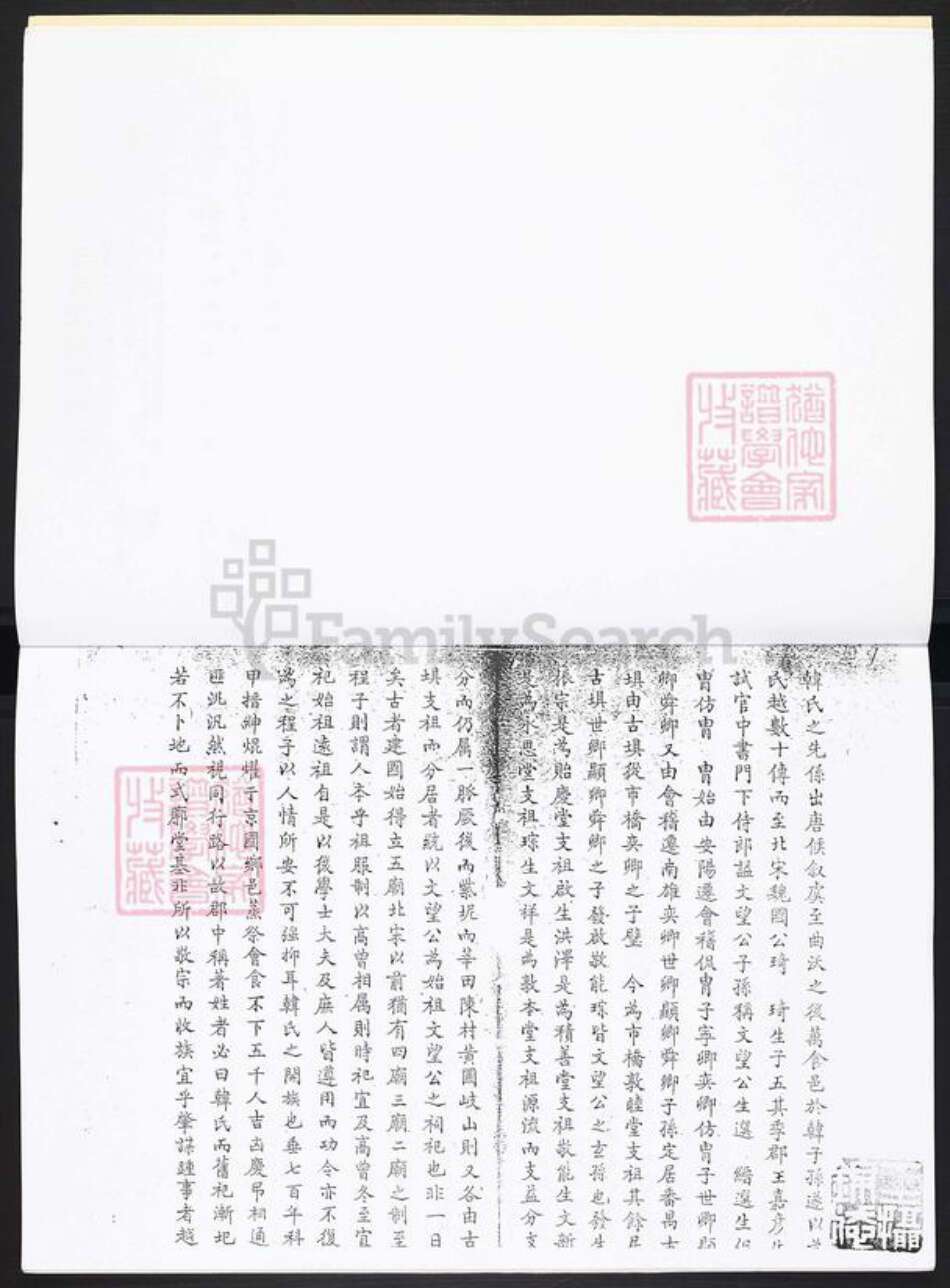 猶他家
譜學會
收藏
FamilySearch
韓氏之先係出唐侯叙虞至曲沃之後萬食邑於韓子孫遂以
氏越數十傳而至北宋魏國公琦 琦生子五其季郡王嘉彦
試官中書門下侍郎謚文望公子孫稱文望公生選 縉選生
胄仿胄 胄始由安陽遷會稽侃胄子寧卿奕卿仿胄子世卿顯
卿舜卿又由會稽遷南雄奕卿世卿顯卿舜卿子孫定居番禺古
垻由古垻從市橋奕卿之子璧 今為市橋敦睦堂支祖其餘居
古垻世卿顯卿舜卿之子發啟敬能琮皆文望公之玄孫也發生
振宗是為貽慶堂支祖啟生洪澤是為積善堂支祖敬能生文新
是為永思堂支祖琮生文祥是為敦本堂支祖源流而支益分支
分而仍屬一脉厥後而紫坭而莘田陳村黃圃岐山則又各由古
垻支祖而分居者統以文望公為始祖文望公之祠祀也非一日
矣古者建國始得立五廟北宋以前猶有四廟三廟二廟之制至
程子則謂人本乎祖服制以高曾相属則時祀宜及高曾冬至宜
祀始祖遠祖自是以後學士大夫及庶人皆遵用而功令亦不復
為之程子以人情所安不可强抑耳韓氏之閥族也垂七百年科
甲搢紳焜燿于京國鄉邑蒸祭會食不下五千人吉凶慶弔相通
匪汎汎然視同行路以故郡中稱著姓者必曰韓氏而舊祀漸圮
若不卜地而式廓堂基非所以敬宗而收族宜乎肇謀建事者越
猶他家
譜學會
收藏